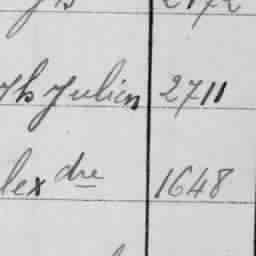 Jh Julien 2711
lex dre 1648